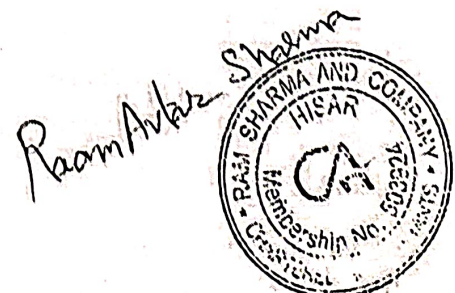 Raam Avtar Sharma
RAM SHARMA AND COMPANY
HISAR
CA
Membership No.
CHARTERED